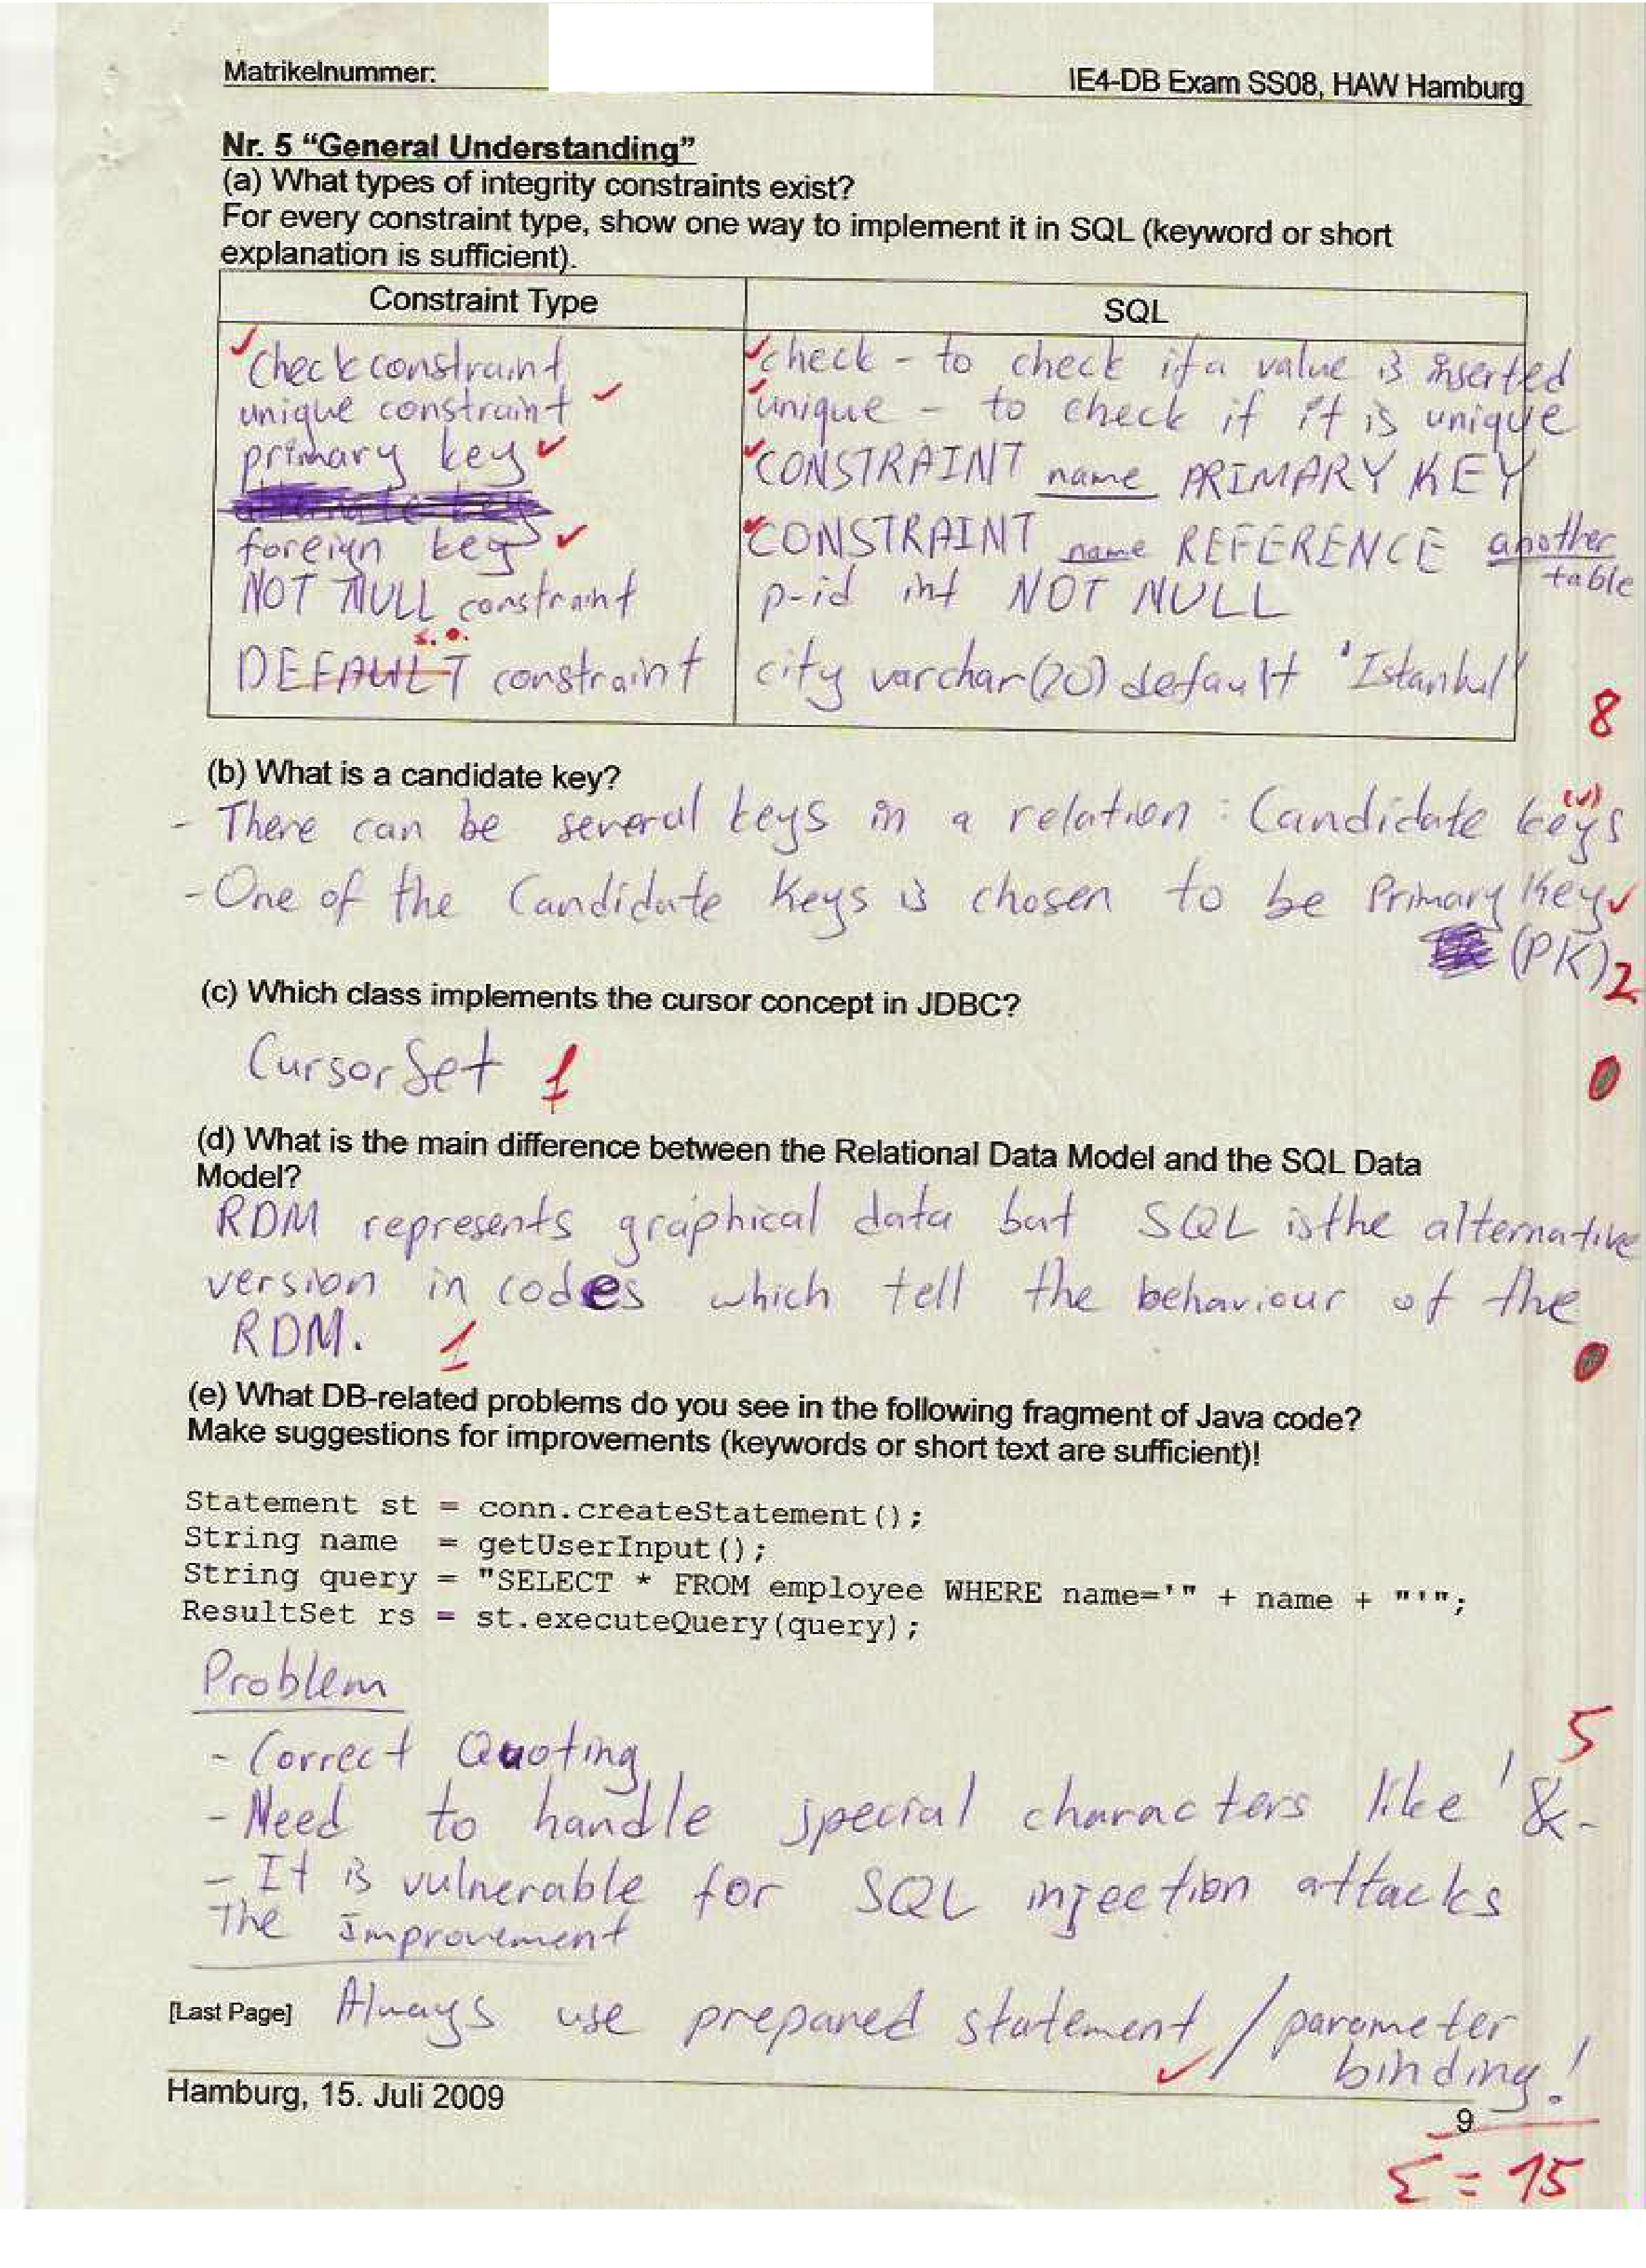 Matrikelnummer:
IE4-DB Exam SS08, HAW Hamburg
Nr. 5 “General Understanding”
(a) What types of integrity constraints exist?
For every constraint type, show one way to implement it in SQL (keyword or short
explanation is sufficient).
Constraint Type
SQL
check constraint
check - to check if a value is inserted
unique constraint
unique - to check if it is unique
primary key
CONSTRAINT name PRIMARY KEY
foreign key
CONSTRAINT name REFERENCE another
table
NOT NULL constraint
p-id int NOT NULL
s. o.
DEFAULT constraint
city varchar(20) default 'Istanbul'
8
(b) What is a candidate key?
- There can be several keys in a relation : Candidate keys
- One of the Candidate Keys is chosen to be Primary Key
(PK)
2
(c) Which class implements the cursor concept in JDBC?
CursorSet
0
(d) What is the main difference between the Relational Data Model and the SQL Data
Model?
RDM represents graphical data but SQL is the alternative
version in codes which tell the behaviour of the
RDM.
0
(e) What DB-related problems do you see in the following fragment of Java code?
Make suggestions for improvements (keywords or short text are sufficient)!
Statement st = conn.createStatement();
String name = getUserInput();
String query = "SELECT * FROM employee WHERE name='" + name + "'";
ResultSet rs = st.executeQuery(query);
Problem
5
- Correct Quoting
- Need to handle special characters like ' & -
- It is vulnerable for SQL injection attacks
The Improvement
[Last Page]
Always use prepared statement / parameter
binding!
Hamburg, 15. Juli 2009
9
Σ = 15